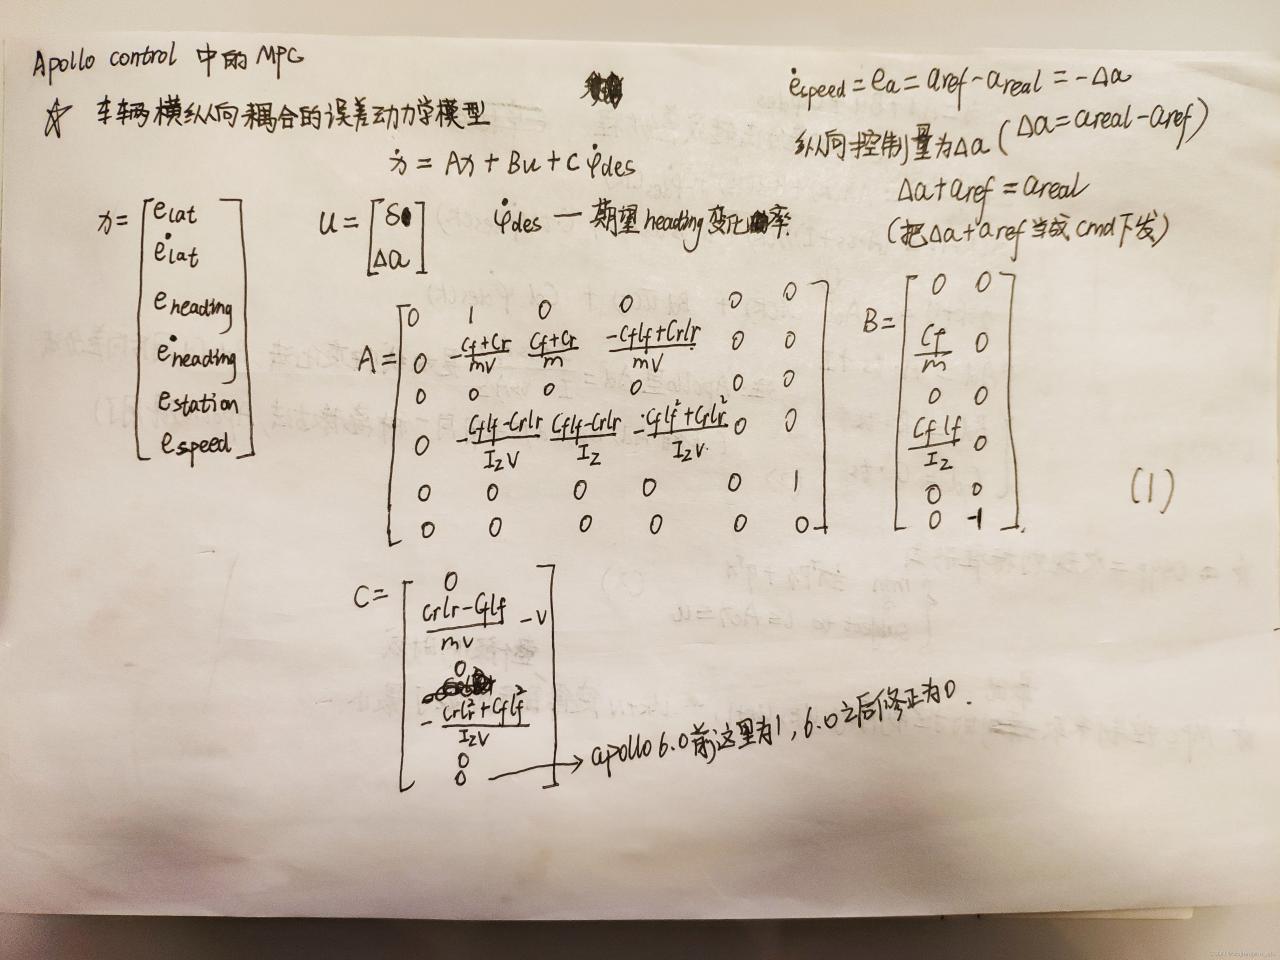 Apollo control 中的 MPC
☆ 车辆横纵向耦合的误差动力学模型
ẋ = Ax + Bu + C φ̇des
ėspeed = ea = aref - areal = -Δa
纵向控制量为Δa (Δa = areal - aref)
Δa + aref = areal
(把Δa + aref 当成 cmd 下发)
x = [elat
ėlat
eheading
ėheading
estation
espeed]
u = [δ
Δa]
φ̇des — 期望heading变化率.
A = [0 1 0 0 0 0
0 -(Cf+Cr)/(mV) (Cf+Cr)/m (-Cflf+Crlr)/(mV) 0 0
0 0 0 0 0 0
0 -(Cflf-Crlr)/(IzV) (Cflf-Crlr)/Iz -(Cflf²+Crlr²)/(IzV) 0 0
0 0 0 0 0 1
0 0 0 0 0 0]
B = [0 0
Cf/m 0
0 0
Cflf/Iz 0
0 0
0 -1]
(1)
C = [0
(Crlr-Cflf)/(mV) - V
0
-(Crlr²+Cflf²)/(IzV)
0
0]
→ apollo 6.0前这里为1, 6.0之后修正为0.